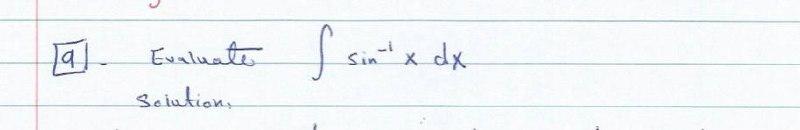 9. Evaluate ∫ sin⁻¹ x dx
Solution.